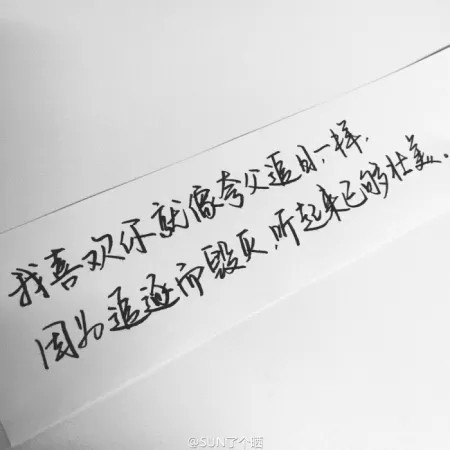 我喜欢你就像夸父追日一样,
因为追逐而毁灭,听起来已够壮美.
@SUN了个晒